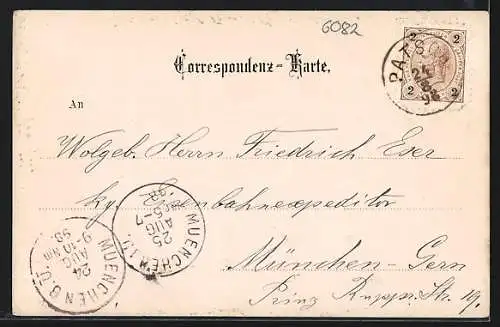 6082
Correspondenz-Karte.
2 2
2 2
PATSCH
An
Wolgeb. Herrn Friedrich Eser
kg. Eisenbahnexpeditor
München-Gern
Prinz Ruppr. Str. 19.
MUENCHEN
25
AUG
5-7
98
MUENCHEN B.P.
24
AUG
9-10
98